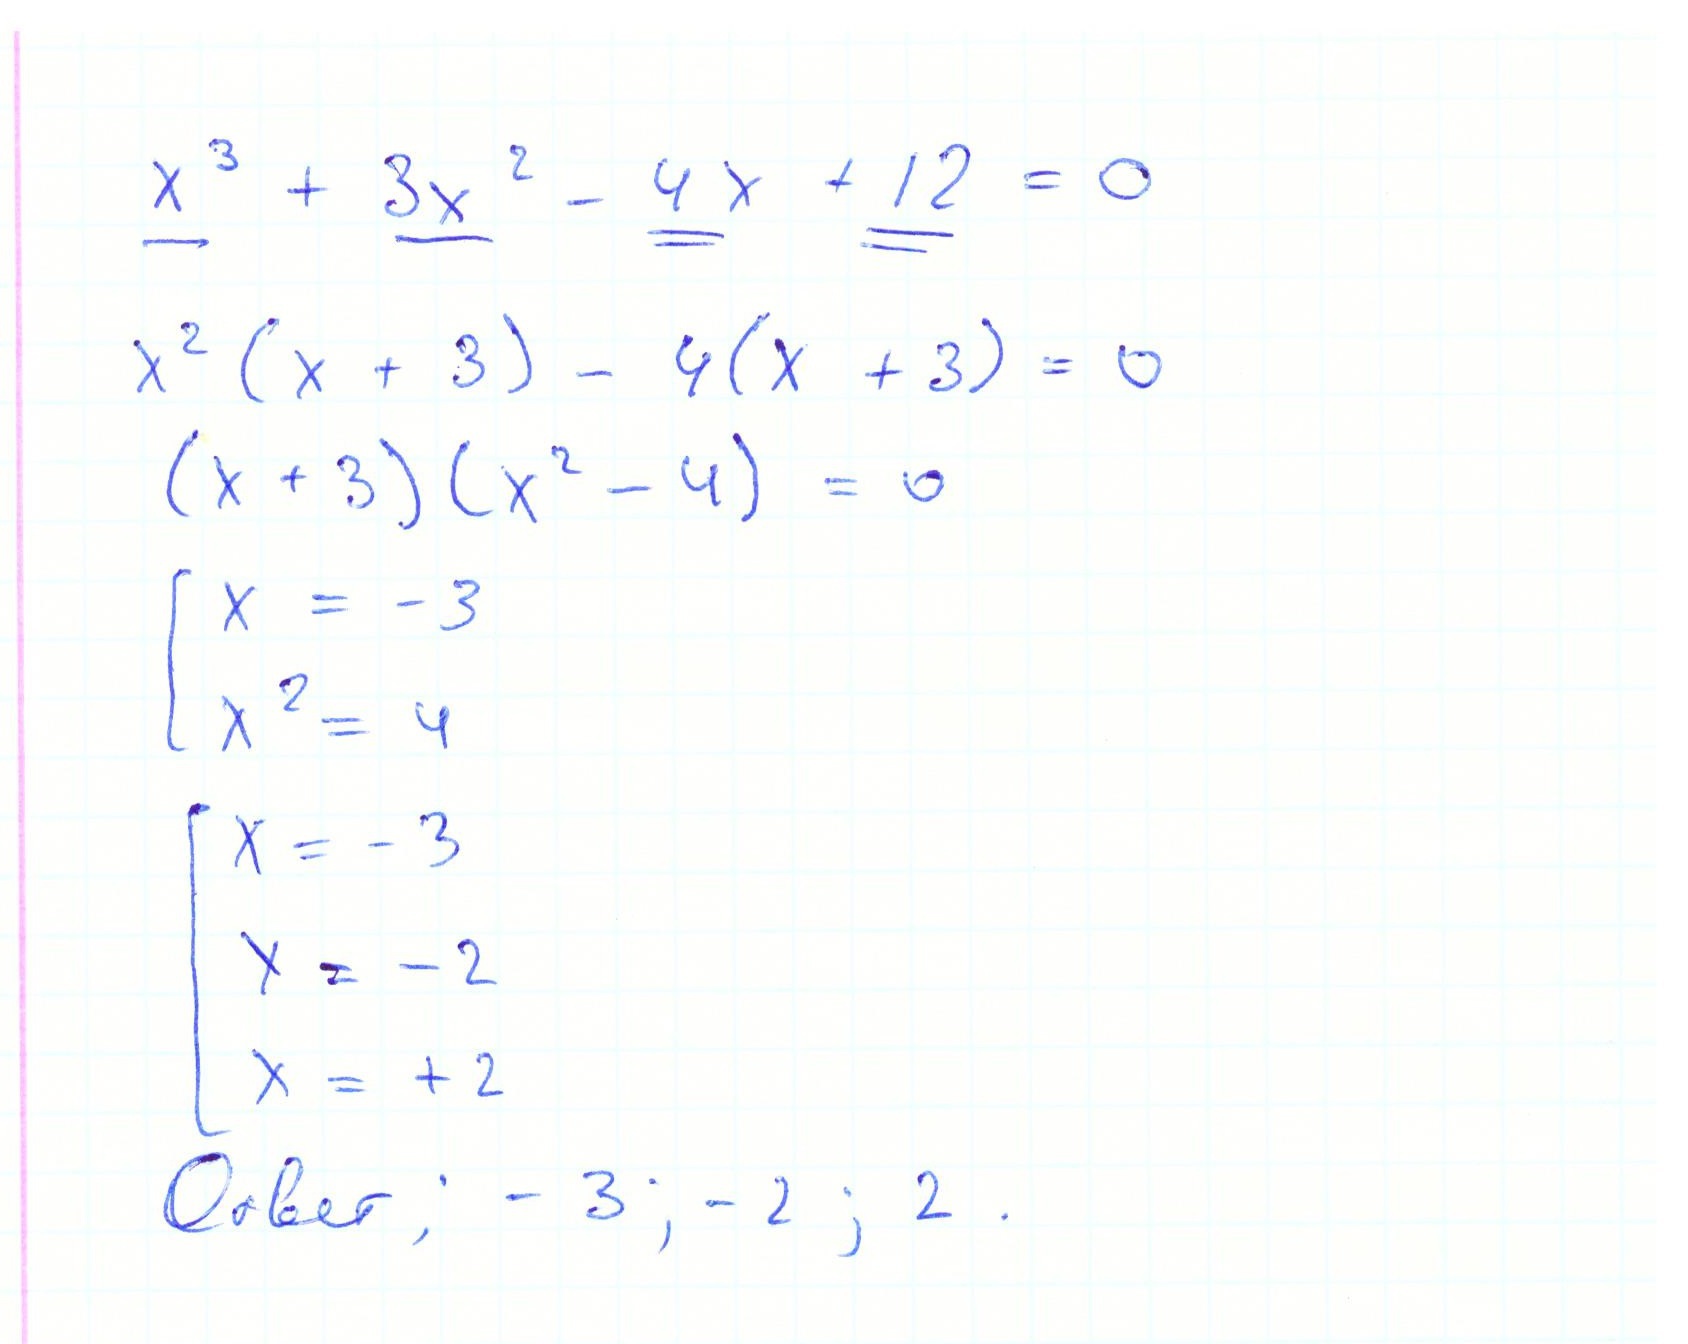 x³ + 3x² - 4x + 12 = 0
x² (x + 3) - 4(x + 3) = 0
(x + 3)(x² - 4) = 0
[ x = -3
x² = 4
[ x = -3
x = -2
x = +2
Ответ; -3; -2; 2.